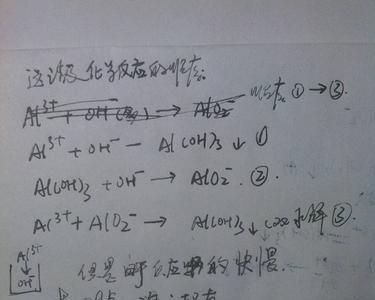 这级化学反应的顺序.
Al³⁺ + OH⁻(多) → AlO₂⁻ 顺序 ① → ③.
Al³⁺ + OH⁻ — Al(OH)₃ ↓ ①
Al(OH)₃ + OH⁻ → AlO₂⁻. ②.
Al³⁺ + AlO₂⁻ → Al(OH)₃ ↓ 水解 ③.
Al³⁺
↓
OH⁻
反应的快慢.